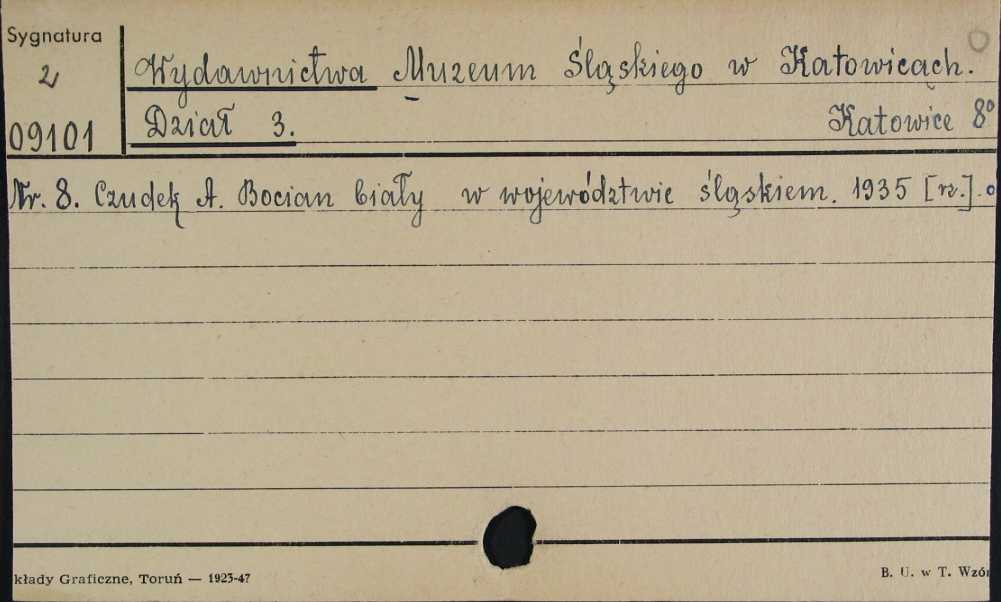 Sygnatura
2
Wydawnictwa Muzeum Śląskiego w Katowicach.
09101
Dział 3. Katowice 8°
Nr. 8. Czudek A. Bocian biały w województwie śląskiem. 1935 [rz.].
kłady Graficzne, Toruń — 1923-47
B. U. w T. Wzór